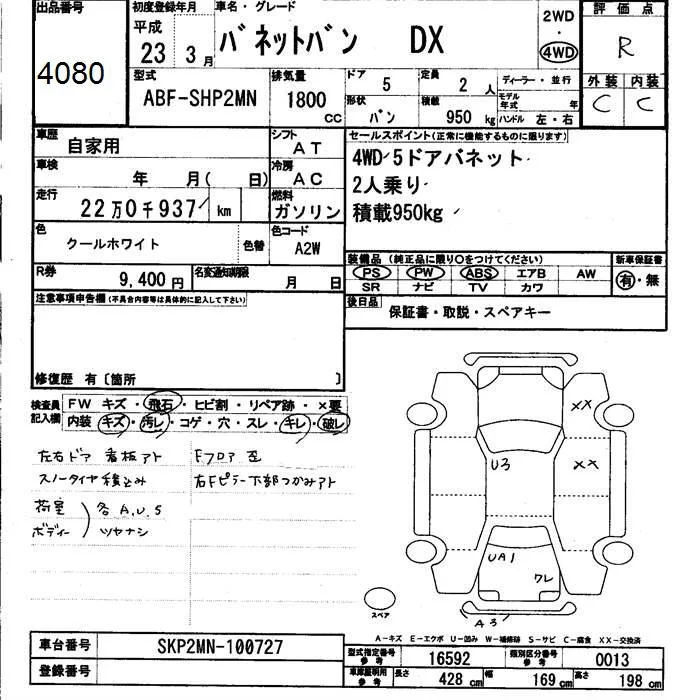 出品番号
4080
初度登録年月
平成
23 3月
車名・グレード
バネットバン DX
2WD
・
4WD
評価点
R
型式
ABF-SHP2MN
排気量
1800
cc
ドア
5
定員
2 人
ディーラー・並行
モデル年式 年
形状
バン
積載
950 kg
ハンドル 左・右
外装 内装
C C
車歴
自家用
シフト
AT
車検
年 月( 日)
冷房
AC
走行
22万0千937 km
燃料
ガソリン
色
クールホワイト
色替
色コード
A2W
セールスポイント(正常に機能するものに限ります)
4WD 5ドアバネット
2人乗り
積載950kg
R券
9,400円
名変通知期限
月 日
装備品(純正品に限り○をつけてください)
PS PW ABS エアB AW
SR ナビ TV カワ
新車保証書
有・無
注意事項申告欄(不具合内容等は具体的に記入して下さい)
後日品
保証書・取説・スペアキー
修復歴 有〔箇所 〕
検査員記入欄
FW キズ・飛石・ヒビ割・リペア跡・×要
内装 キズ・汚レ・コゲ・穴・スレ・キレ・破レ
左右ドア 看板アト
スノータイヤ積込み
荷室
ボディー
各A,U,S
ツヤナシ
Fフロア歪
右Fピラー下部つかみアト
XX
U3
XX
UA1
ワレ
A3
スペア
A-キズ E-エクボ U-凹み W-補修跡 S-サビ C-腐食 XX-交換済
車台番号
SKP2MN-100727
登録番号
型式指定番号
参考
16592
類別区分番号
参考
0013
車庫証明用
参考
長さ
428 cm
幅
169 cm
高さ
198 cm